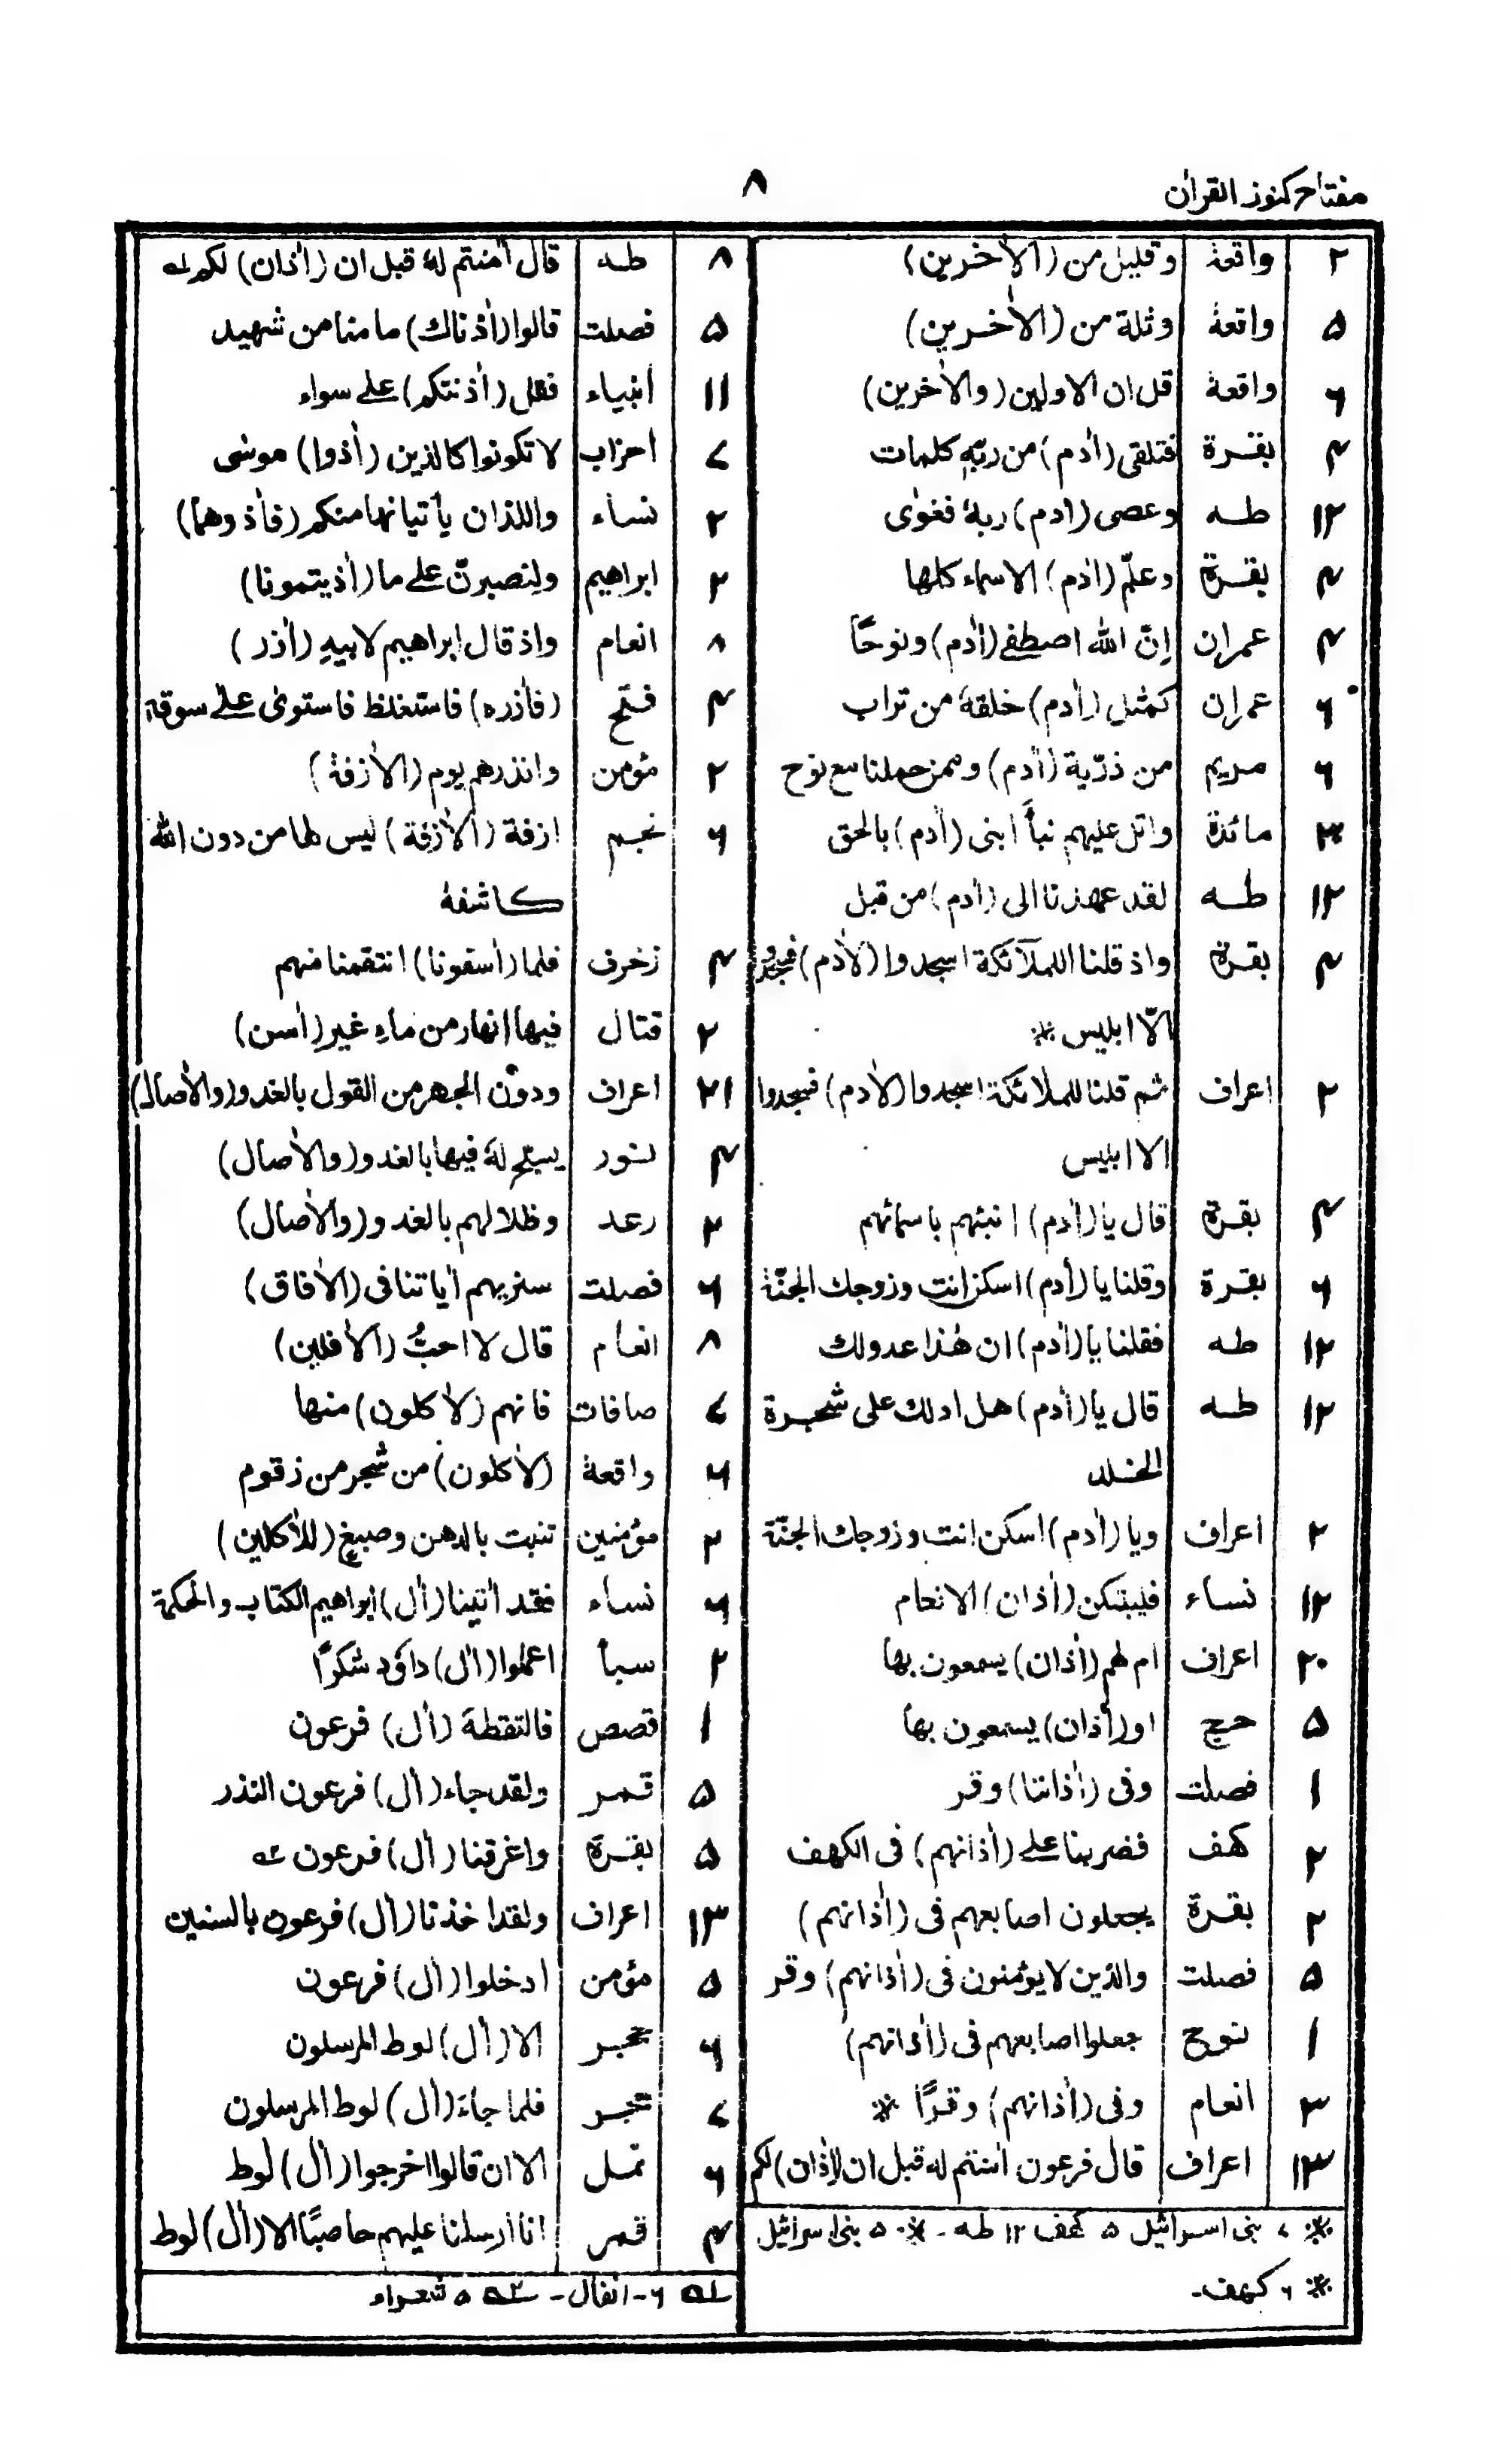 مفتاح کنوز القرآن
۸
۲ واقعۃ وقلیل من (الاٰخرین)
۵ واقعۃ وثلة من (الاٰخرین)
۶ واقعۃ قل ان الاولین (والاٰخرین)
۴ بقرة فتلقی (اٰدم) من ربّهٖ کلمات
۱۲ طه وعصی (اٰدم) ربهٗ فغوٰی
۴ بقرة وعلّم (اٰدم) الاسماء کلها
۴ عمران اِنّ الله اصطفے (اٰدم) ونوحًا
۶ عمران کمثل (اٰدم) خلقهٗ من تراب
۶ مریم من ذرّیة (اٰدم) وممن حملنا مع نوح
۳ مائدة واتل علیهم نبأَ ابنی (اٰدم) بالحق
۱۲ طه لقد عهدنا الی (اٰدم) من قبل
۴ بقرة واذ قلنا للملآئکة اسجدوا (لاٰدم) فسجدوا
الّا ابلیس ※
۲ اعراف ثم قلنا للملائکة اسجدوا (لاٰدم) فسجدوا
الا ابلیس
۴ بقرة قال یا (اٰدم) انبئهم باسمائهم
۶ بقرة وقلنا یا (اٰدم) اسکن انت وزوجك الجنّة
۱۲ طه فقلنا یا (اٰدم) ان هٰذا عدولك
۱۲ طه قال یا (اٰدم) هل ادلك علی شجرة
الخلد
۲ اعراف ویا (اٰدم) اسکن انت وزوجك الجنّة
۱۲ نساء فلیبتکن (اٰذان) الانعام
۲۰ اعراف ام لهم (اٰذان) یسمعون بها
۵ حج او (اٰذان) یسمعون بها
۱ فصلت وفی (اٰذاننا) وقر
۲ کهف فضربنا علے (اٰذانهم) فی الکهف
۲ بقرة یجعلون اصابعهم فی (اٰذانهم)
۵ فصلت والذین لا یؤمنون فی (اٰذانهم) وقر
۱ نوح جعلوا اصابعهم فی (اٰذانهم)
۳ انعام وفی (اٰذانهم) وقرًا ※
۱۳ اعراف قال فرعون اٰمنتم له قبل ان (اٰذان) لکم
※ ۷ بنی اسرائیل ۵ کهف ۱۲ طه - ※ ۵ بنی اسرائیل
※ ۶ کهف-
۸ طه قال اٰمنتم لهٗ قبل ان (اٰذان) لکم لـه
۵ فصلت قالوا (اٰذناك) ما منا من شهید
۱۱ انبیاء فقل (اٰذنتکم) علے سواء
۷ احزاب لا تکونوا کالذین (اٰذوا) موسٰی
۲ نساء واللذان یأتیانها منکم (فاٰذوهما)
۲ ابراهیم ولنصبرنّ علے ما (اٰذیتمونا)
۸ انعام واذ قال ابراهیم لابیهِ (اٰذر)
۴ فتح (فاٰزره) فاستغلظ فاستوٰی علےٰ سوقه
۲ مؤمن وانذرهم یوم (الاٰزفة)
۶ نجم ازفة (الاٰزفة) لیس لها من دون الله
کاشفة
۴ زخرف فلما (اٰسفونا) انتقمنا منهم
۲ قتال فیها انهار من ماءٍ غیرِ (اٰسن)
۲۱ اعراف ودون الجهر من القول بالغدو (والاٰصال)
۴ نور یسبّح لهٗ فیها بالغدو (والاٰصال)
۲ رعد وظلالهم بالغدو (والاٰصال)
۶ فصلت سنریهم اٰیاتنا فی (الاٰفاق)
۸ انعام قال لا احبُّ (الاٰفلین)
۷ صافات فانهم (لاٰکلون) منها
۶ واقعة (لاٰکلون) من شجر من زقوم
۲ مؤمنین تنبت بالدهن وصبغٍ (للاٰکلین)
۶ نساء فقد اٰتینا (اٰل) ابراهیم الکتاب والحکمة
۲ سبأ اعملوا (اٰل) داؤد شکرًا
۱ قصص فالتقطهٗ (اٰل) فرعون
۵ قمر ولقد جاء (اٰل) فرعون النذر
۵ بقرة واغرقنا (اٰل) فرعون
۱۳ اعراف ولقد اخذنا (اٰل) فرعون بالسنین
۵ مؤمن ادخلوا (اٰل) فرعون
۶ حجر الا (اٰل) لوط المرسلون
۷ حجر فلما جاءَ (اٰل) لوط المرسلون
۶ نمل الا ان قالوا اخرجوا (اٰل) لوط
۴ قمر انا ارسلنا علیهم حاصبًا الا (اٰل) لوط
لـه ۶- انفال - ۵ شعراء